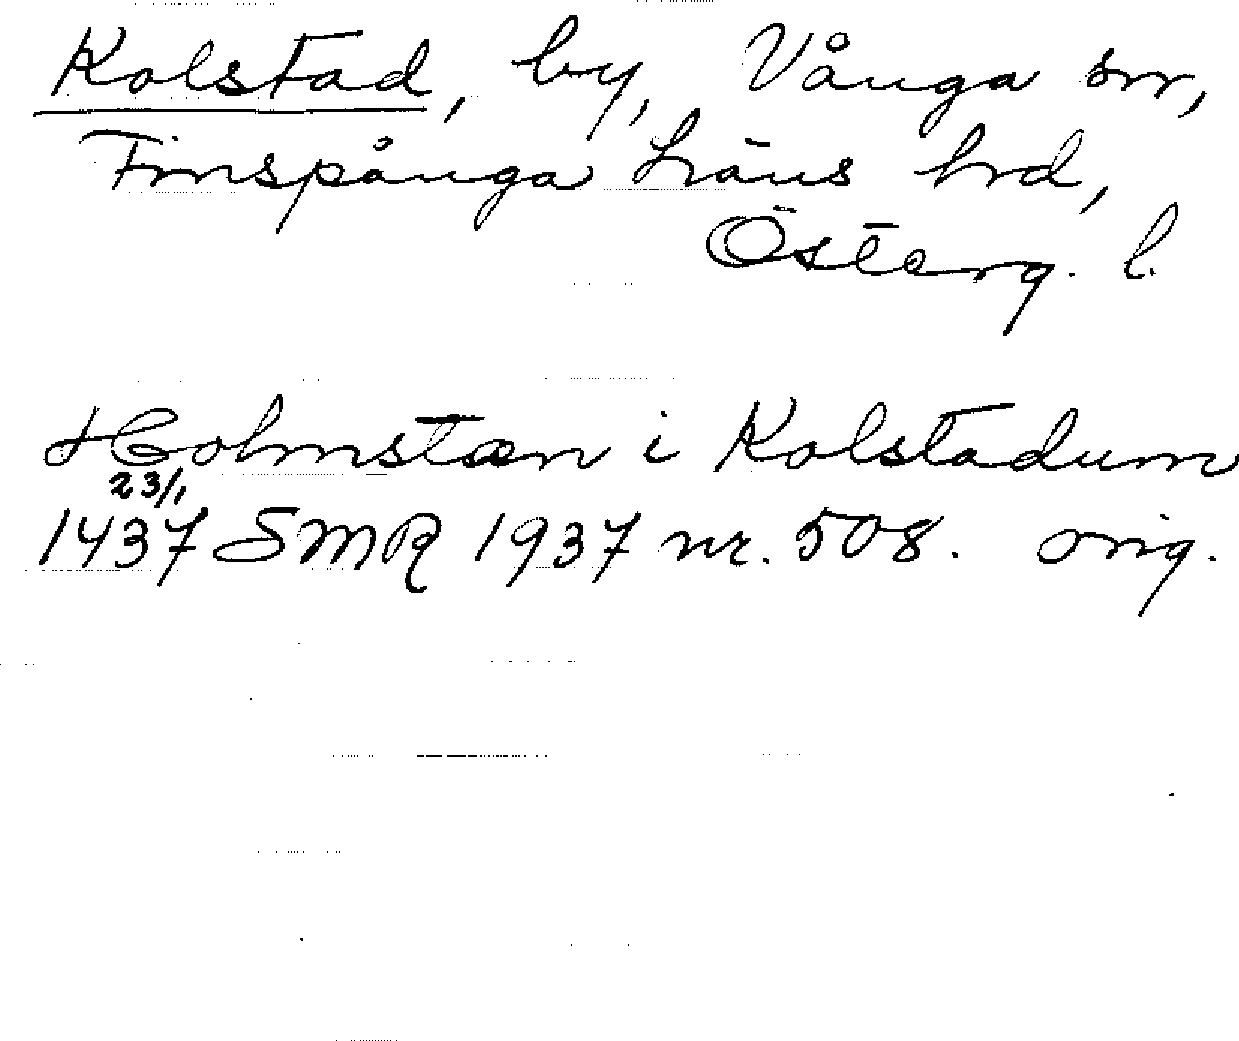 Kolstad, by, Vånga sn,
Finspånga läns hrd,
Österg. l.
Holmstæn i Kolstadum
23/1
1437 SMR 1937 nr. 508. orig.